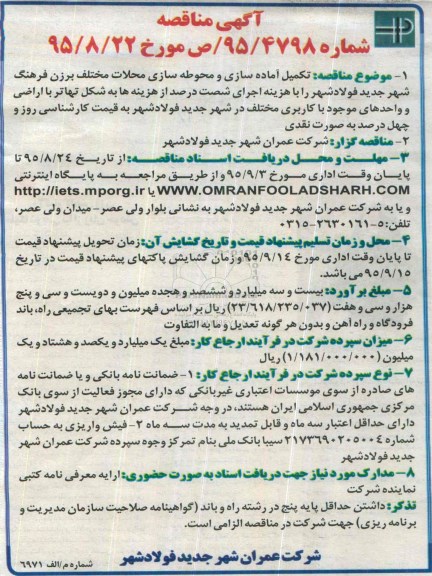 آگهی مناقصه
شماره ۹۵/۴۷۹۸/ص مورخ ۹۵/۸/۲۲
۱- موضوع مناقصه: تکمیل آماده سازی و محوطه سازی محلات مختلف برزن فرهنگ
شهر جدید فولادشهر را با هزینه اجرای شصت درصد از هزینه ها به شکل تهاتر با اراضی
و واحدهای موجود با کاربری مختلف در شهر جدید فولادشهر به قیمت کارشناسی روز و
چهل درصد به صورت نقدی
۲- مناقصه گزار: شرکت عمران شهر جدید فولادشهر
۳- مهلت و محل دریافت اسناد مناقصه: از تاریخ ۹۵/۸/۲۴ تا
پایان وقت اداری مورخ ۹۵/۹/۳ و از طریق مراجعه به پایگاه اینترنتی
http://iets.mporg.ir یا WWW.OMRANFOOLADSHARH.COM
و یا به شرکت عمران شهر جدید فولادشهر به نشانی بلوار ولی عصر- میدان ولی عصر،
تلفن: ۵-۲۶۳۰۱۶۱-۰۳۱۵
۴- محل و زمان تسلیم پیشنهاد قیمت و تاریخ گشایش آن: زمان تحویل پیشنهاد قیمت
تا پایان وقت اداری مورخ ۹۵/۹/۱۴ وزمان گشایش پاکتهای پیشنهاد قیمت در تاریخ
۹۵/۹/۱۵ می باشد.
۵- مبلغ برآورد: بیست و سه میلیارد و ششصد و هجده میلیون و دویست و سی و پنج
هزار و سی و هفت (۲۳/۶۱۸/۲۳۵/۰۳۷) ریال بر اساس فهرست بهای تجمیعی راه، باند
فرودگاه و راه آهن و بدون هر گونه تعدیل و ما به التفاوت
۶- میزان سپرده شرکت در فرآیند ارجاع کار: مبلغ یک میلیارد و یکصد و هشتاد و یک
میلیون (۱/۱۸۱/۰۰۰/۰۰۰) ریال
۷- نوع سپرده شرکت در فرآیند ارجاع کار: ۱- ضمانت نامه بانکی و یا ضمانت نامه
های صادره از سوی موسسات اعتباری غیربانکی که دارای مجوز فعالیت از سوی بانک
مرکزی جمهوری اسلامی ایران هستند، در وجه شرکت عمران شهر جدید فولادشهر
دارای حداقل اعتبار سه ماه و قابل تمدید به مدت سه ماه ۲- فیش واریزی به حساب
شماره ۲۱۷۳۶۹۰۲۰۵۰۰۴ سیبا بانک ملی بنام تمرکز وجوه سپرده شرکت عمران شهر
جدید فولادشهر
۸- مدارک مورد نیاز جهت دریافت اسناد به صورت حضوری: ارایه معرفی نامه کتبی
نماینده شرکت
تذکر: داشتن حداقل پایه پنج در رشته راه و باند (گواهینامه صلاحیت سازمان مدیریت و
برنامه ریزی) جهت شرکت در مناقصه الزامی است.
شرکت عمران شهر جدید فولادشهر
شماره م/الف ۶۹۷۱